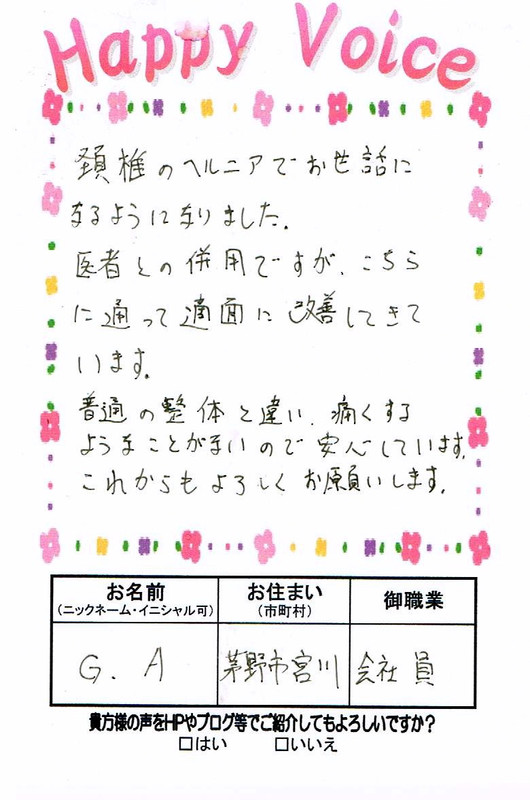 Happy Voice
頚椎のヘルニアでお世話に
なるようになりました。
医者との併用ですが、こちら
に通って適面に改善してきて
います。
普通の整体と違い、痛くする
ようなことがないので安心しています。
これからもよろしくお願いします。
お名前
(ニックネーム・イニシャル可)
お住まい
(市町村)
御職業
G. A
茅野市宮川
会社員
貴方様の声をHPやブログ等でご紹介してもよろしいですか?
□はい □いいえ